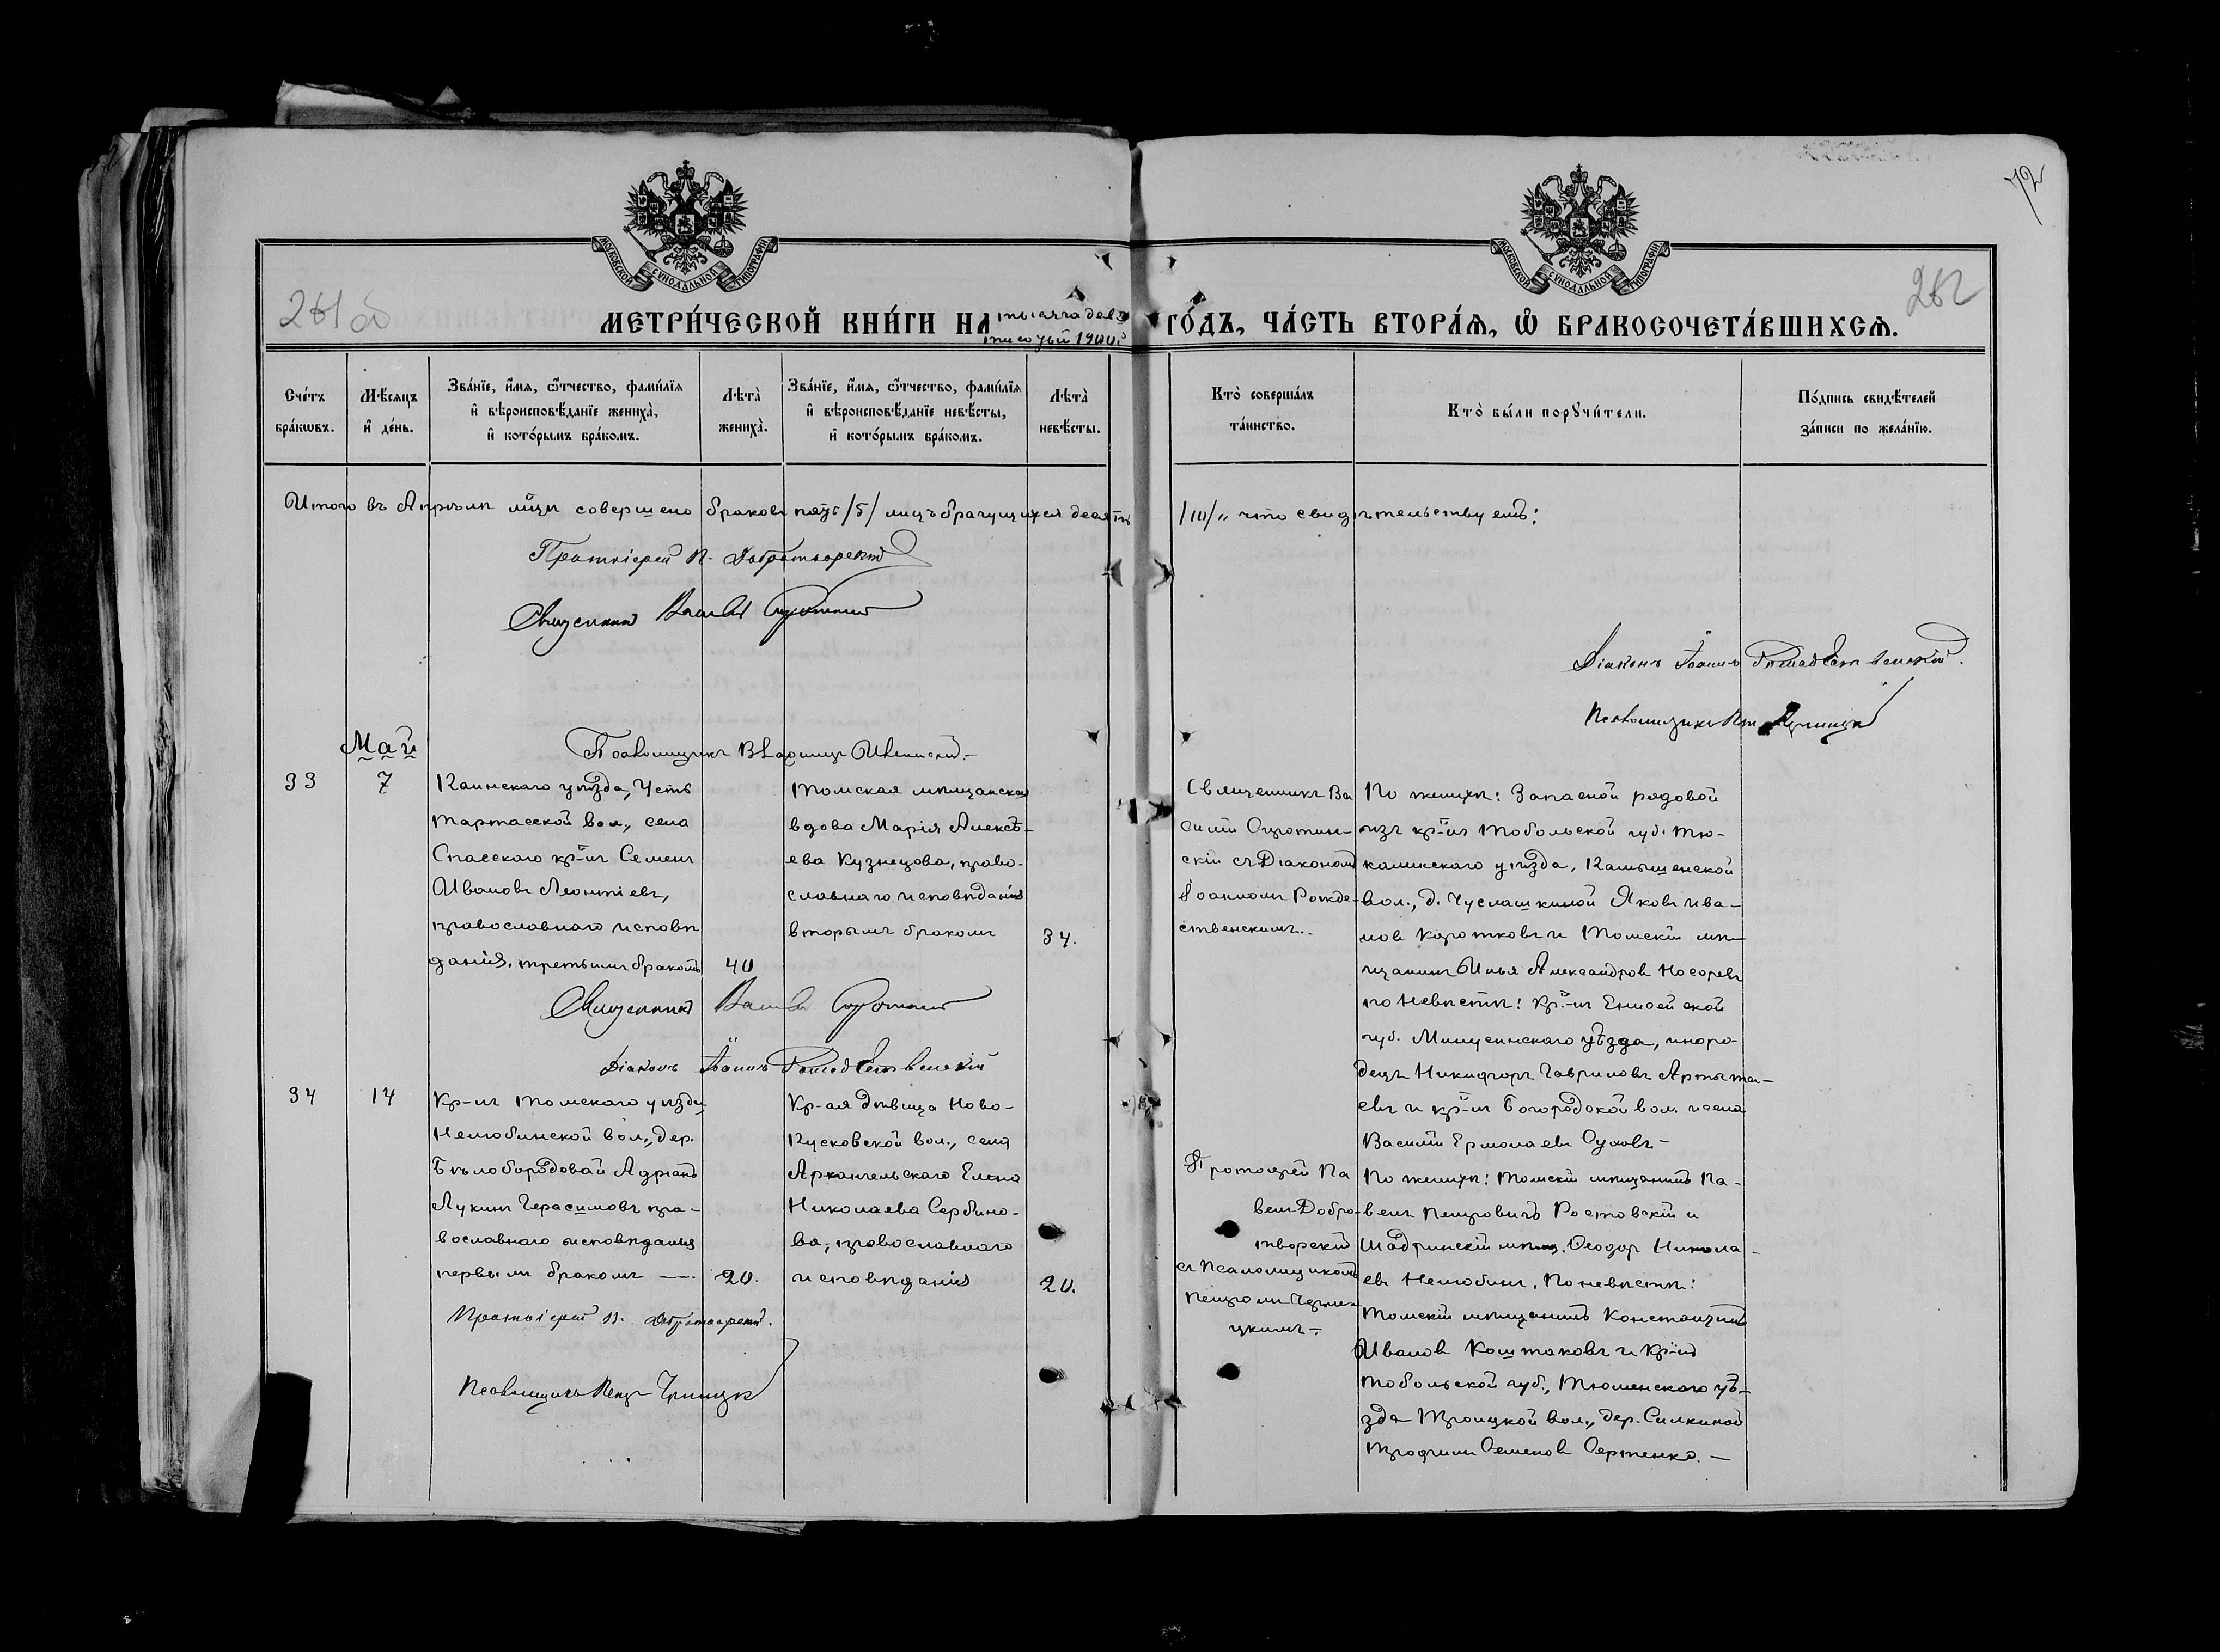 72
261 об
262
МОСКОВСКОЙ СѴНОДАЛЬНОЙ ТИПОГРАФІИ
МОСКОВСКОЙ СѴНОДАЛЬНОЙ ТИПОГРАФІИ
МЕТРИ́ЧЕСКОЙ КНИ́ГИ НА тысяча девя
тисотый 1900й
ГО́ДЪ, ЧА́СТЬ ВТОРА́Я, Ѽ БРАКОСОЧЕТА́ВШИХСѦ.
Сче́тъ
бра́кѡвъ.
Мѣ́сяцъ
и҆ де́нь.
Зва́нїе, и҆́мя, ѻ҆́тчество, фами́лїя
и҆ вѣроисповѣ́данїе жениха̀,
и҆ кото́рымъ бра́комъ.
Лѣта̀
жениха̀.
Зва́нїе, и҆́мя, ѻ҆́тчество, фами́лїя
и҆ вѣроисповѣ́данїе невѣ́сты,
и҆ кото́рымъ бра́комъ.
Лѣта̀
невѣ́сты.
Кто̀ соверша́лъ
та́инство.
Кто̀ бы́ли порꙋчи́тели.
По́дпись свидѣ́телей
за́писи по жела́нїю.
Итого въ Апрѣлѣ м͠цѣ совершено браковъ пять /5/ лицъ брачущихся десять /10/,, что свидѣтельствуемъ:
Протоіерей П. Добротворскій
Священникъ Василій Сиротинскій
Діаконъ Іоаннъ Рождественскій.
Псаломщикъ
Май
Псаломщикъ Владимиръ
33
7
Каинскаго уѣзда, Усть
тартасской вол., села
Спасскаго кр-нъ Семенъ
Ивановъ Леонтіевъ,
православнаго исповѣ
данія. третьимъ бракомъ
40
Томская мѣщанская
вдова Марія Алексѣ-
ева Кузнецова, право-
славнаго исповѣданія
вторымъ бракомъ
34.
Священникъ Ва
силій Сиротин-
скій съ Діакономъ
Іоанномъ Рожде-
ственскимъ..
По женихѣ: Запасной рядовой
изъ кр-нъ Тобольской губ. Тю-
калинскаго уѣзда, Камышенской
вол., д. Чуслашкиной Яковъ Ива-
новъ Коротковъ и Томскій мѣ-
щанинъ Илья Александровъ Носоревъ
по невѣстѣ: кр-нъ Енисейской
губ. Минусинскаго уѣзда, иноро-
децъ Никифоръ Гавриловъ Артыма-
евъ и кр-нъ Богородской вол. и села
Василій Ермолаевъ Суховъ-
Священникъ Василій Сиротинскій
Діаконъ Іоаннъ Рождественскій
34
14
Кр-нъ Томскаго уѣзда
Нелюбинской вол., дер.
Бѣлобородовой Адріанъ
Лукинъ Герасимовъ пра-
вославнаго исповѣданія
первымъ бракомъ —
20.
Кр-ая дѣвица Ново-
Кусковской вол., села
Архангельскаго Елена
Николаева Сербино-
ва, православнаго
исповѣданія
20.
Протоіерей Па
велъ Добро-
творскій
съ Псаломщикомъ
Петромъ Черни-
цкимъ-
По женихѣ: Томскій мѣщанинъ Па-
велъ Петровичъ Ростовскій и
Шадринскій мѣщ. Ѳеодоръ Никола-
евъ Нелюбинъ. По невѣстѣ:
Томскій мѣщанинъ Константинъ
Ивановъ Коштаковъ и кр-нъ
Тобольской губ., Тюменскаго уѣ-
зда Троицкой вол., дер. Силкиной
Трофимъ Семеновъ Сертенко. —
Протоіерей П. Добротворскій.
Псаломщикъ Петръ